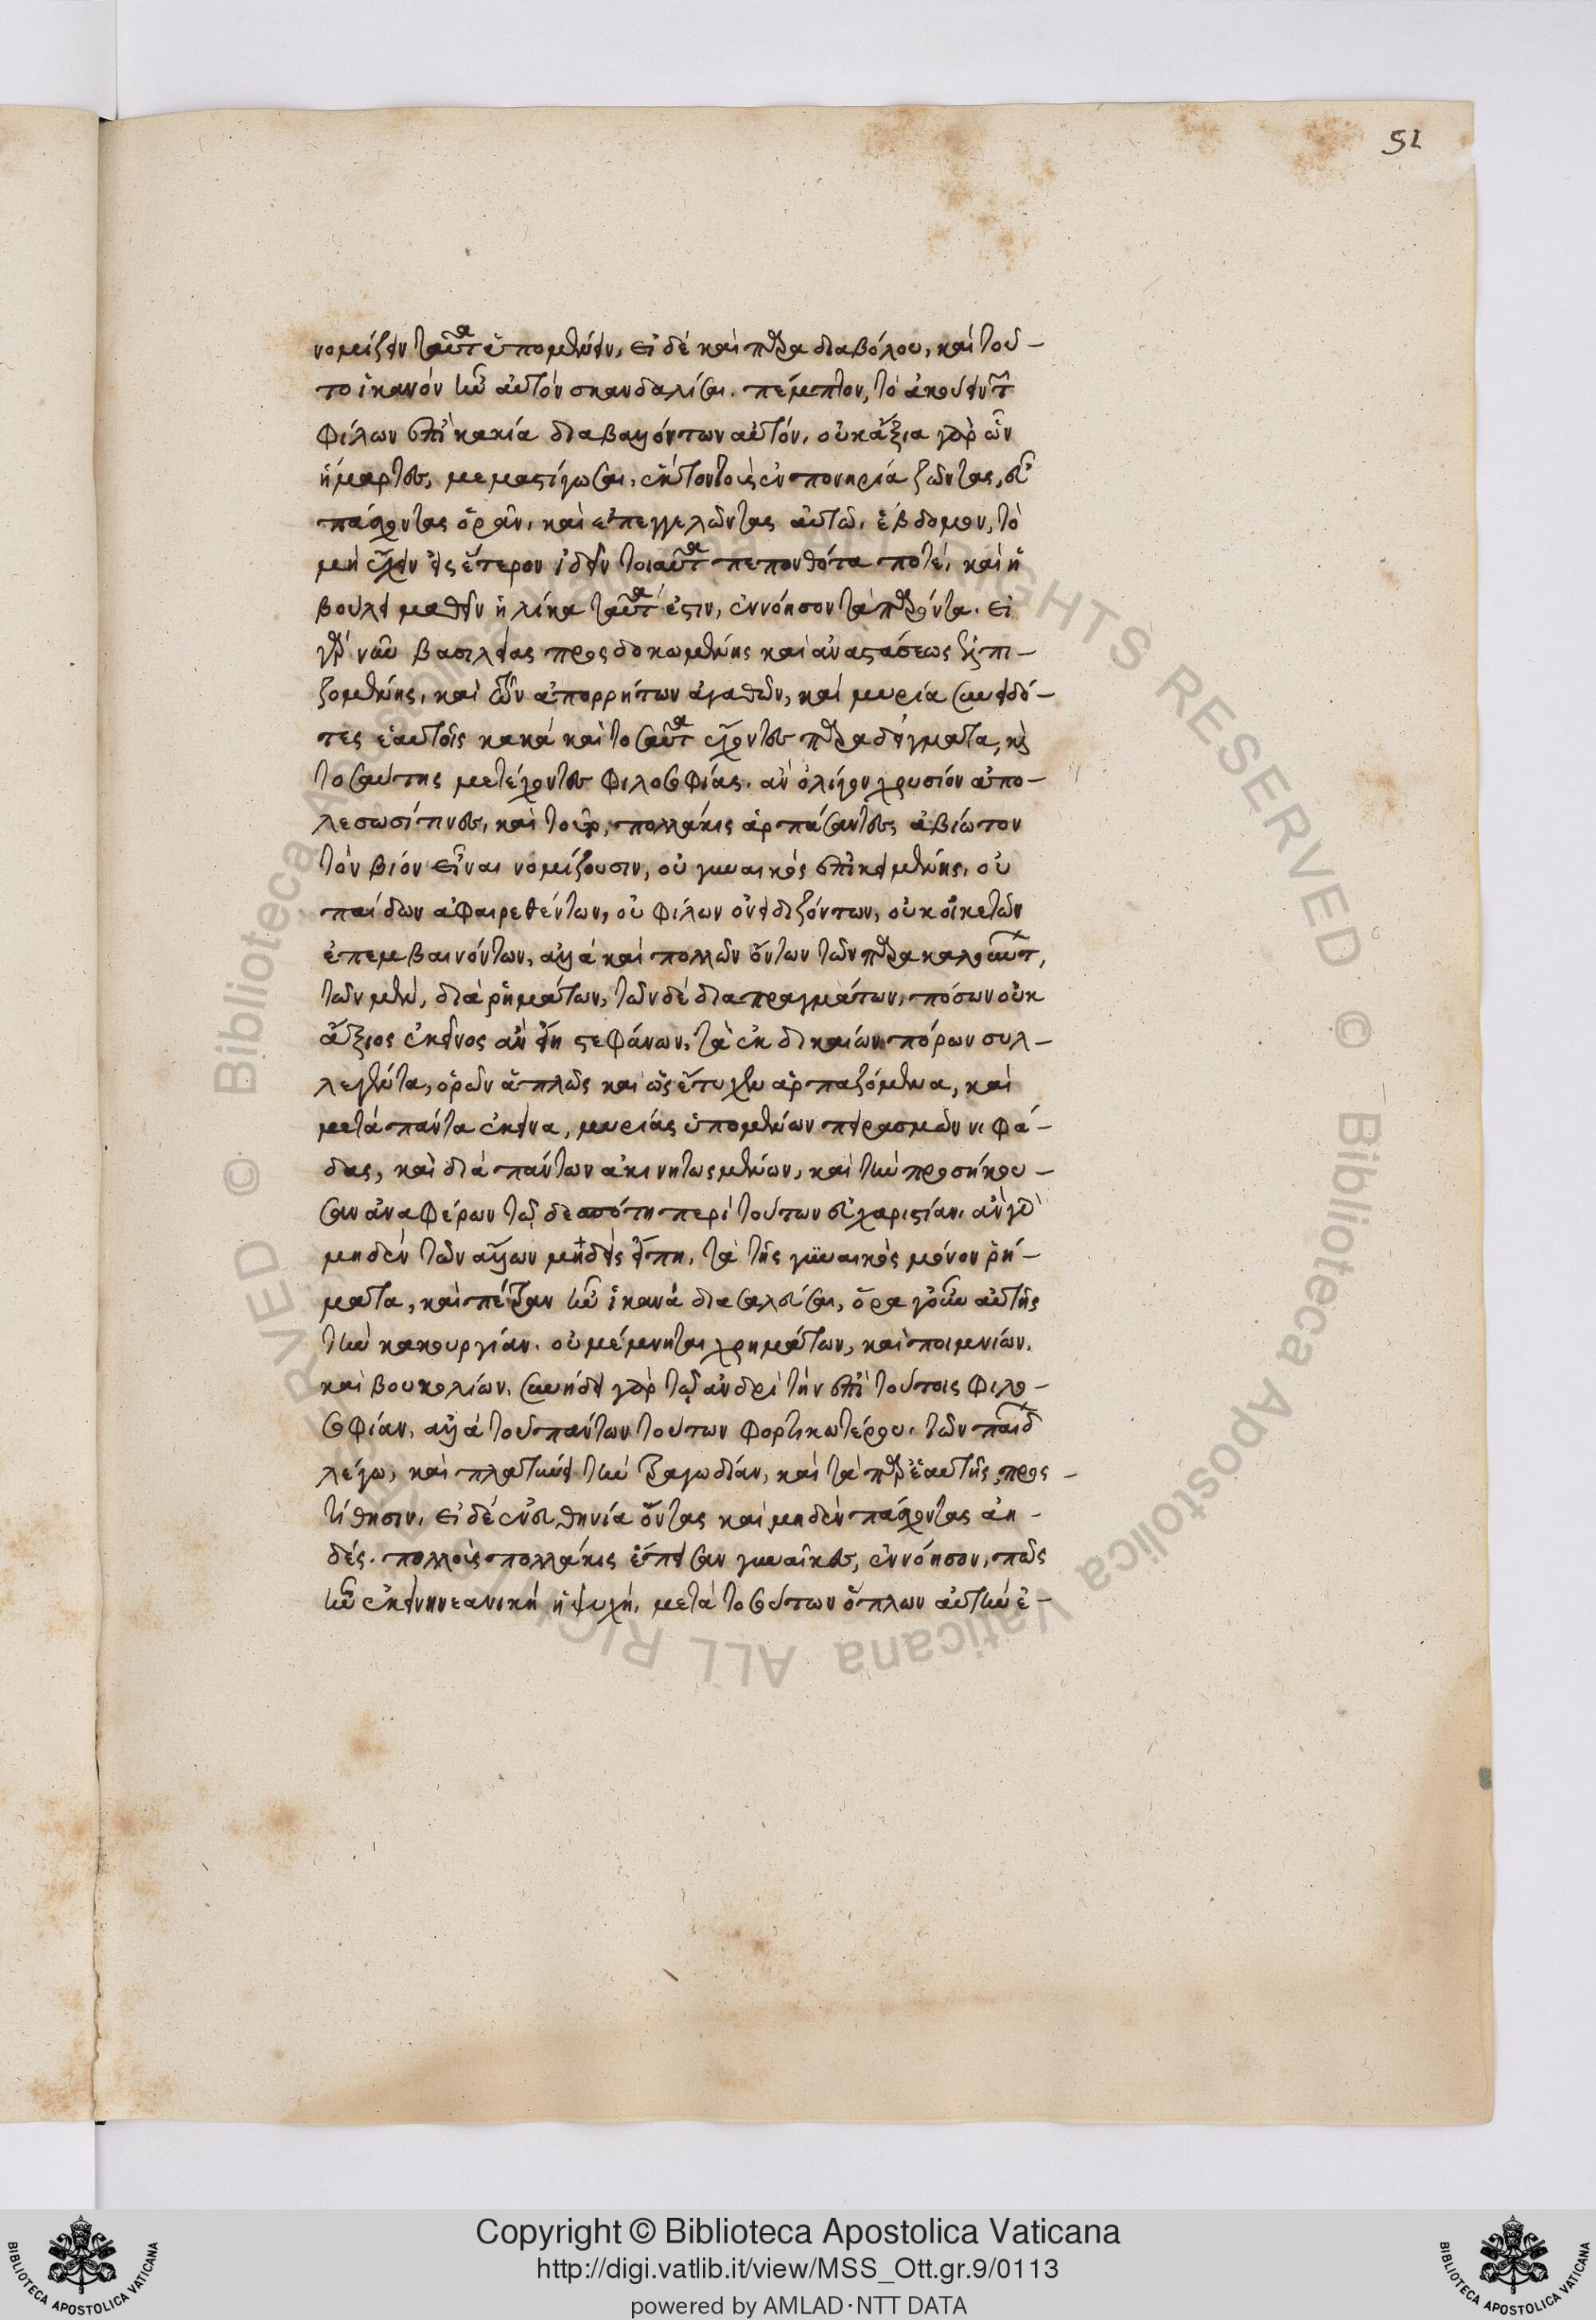 51
νομίζειν ταῦτα ὑπομένειν, εἰ δὲ καὶ παρὰ διαβόλου, καὶ τοῦ-
το ἱκανὸν ἦν αὐτὸν σκανδαλίσαι. πέμπτον, τὸ ἀκούειν τῶν
φίλων ἐπὶ κακία διαβαλλόντων αὐτόν, οὐκ ἄξια γὰρ ὧν
ἡμάρτες, μεμαστίγωσαι. ἕκτον τοὺς ἐν πονηρία ζῶντας, εὖ
πάσχοντας ὁρᾶν, καὶ ἐπεγγελῶντας αὐτῶ. ἕβδομον, τὸ
μὴ ἔχειν εἰς ἕτερον ἰδεῖν τοιαῦτα πεπονθότα ποτέ, καὶ εἰ
βούλει μαθεῖν ἡλίκα ταῦτά ἐστιν, ἐννόησον τὰ παρόντα. εἰ
γὰρ νῦν βασιλείας προσδοκωμένης καὶ ἀναστάσεως ἐλπι-
ζομένης, καὶ τῶν ἀπορρήτων ἀγαθῶν, καὶ μυρία συνειδό-
τες ἑαυτοῖς κακὰ καὶ τοσαῦτα ἔχοντες παραδείγματα, καὶ
τοσαύτης μετέχοντες φιλοσοφίας. ἂν ὀλίγον χρυσίον ἀπο-
λέσωσί τινες, καὶ τοῦτο, πολλάκις ἁρπάσαντες, ἀβίωτον
τὸν βίον εἶναι νομίζουσιν, οὐ γυναικὸς ἐπικειμένης, οὐ
παίδων ἀφαιρεθέντων, οὐ φίλων ὀνειδιζόντων, οὐκ οἰκετῶν
ἐπεμβαινόντων, ἀλλὰ καὶ πολλῶν ὄντων τῶν παρακαλούντων,
τῶν μὲν, διὰ ῥημάτων, τῶν δὲ διὰ πραγμάτων, πόσων οὐκ
ἄξιος ἐκεῖνος ἂν εἴη στεφάνων, τὰ ἐκ δικαίων πόρων συλ-
λεγέντα, ὁρῶν ἁπλῶς καὶ ὡς ἔτυχεν ἁρπαζόμενα, καὶ
μετὰ πάντα ἐκεῖνα, μυρίας ὑπομένων πειρασμῶν νιφά-
δας, καὶ διὰ πάντων ἀκινήτως μένων, καὶ τὴν προσήκου-
σαν ἀναφέρων τῶ δεσπότη περὶ τούτων εὐχαριστίαν. ἂν γὰρ
μηδὲν τῶν ἄλλων μηδεὶς εἴπη, τὰ τῆς γυναικὸς μόνον ῥή-
ματα, καὶ πέτραν ἦν ἱκανὰ διασαλεῦσαι, ὅρα γοῦν αὐτῆς
τὴν κακουργίαν. οὐ μέμνηται χρημάτων, καὶ ποιμνίων,
καὶ βουκολίων, συνήδει γὰρ τῶ ἀνδρὶ τὴν ἐπὶ τούτοις φιλο-
σοφίαν, ἀλλὰ τοῦ πάντων τούτων φορτικωτέρου, τῶν παίδων
λέγω, καὶ πλατύνει τὴν τραγωδίαν, καὶ τὰ παρ' ἑαυτῆς προσ-
τίθησιν. εἰ δὲ ἐν εὐθηνία ὄντας καὶ μηδὲν πάσχοντας ἀη-
δές, πολλοὺς πολλάκις ἔπεισαν γυναῖκες, ἐννόησον, πῶς
ἦν ἐκείνη νεανικὴ ἡ ψυχή, μετὰ τοσούτων ὅπλων αὐτὴν ἐ-
Copyright © Biblioteca Apostolica Vaticana
http://digi.vatlib.it/view/MSS_Ott.gr.9/0113
powered by AMLAD·NTT DATA